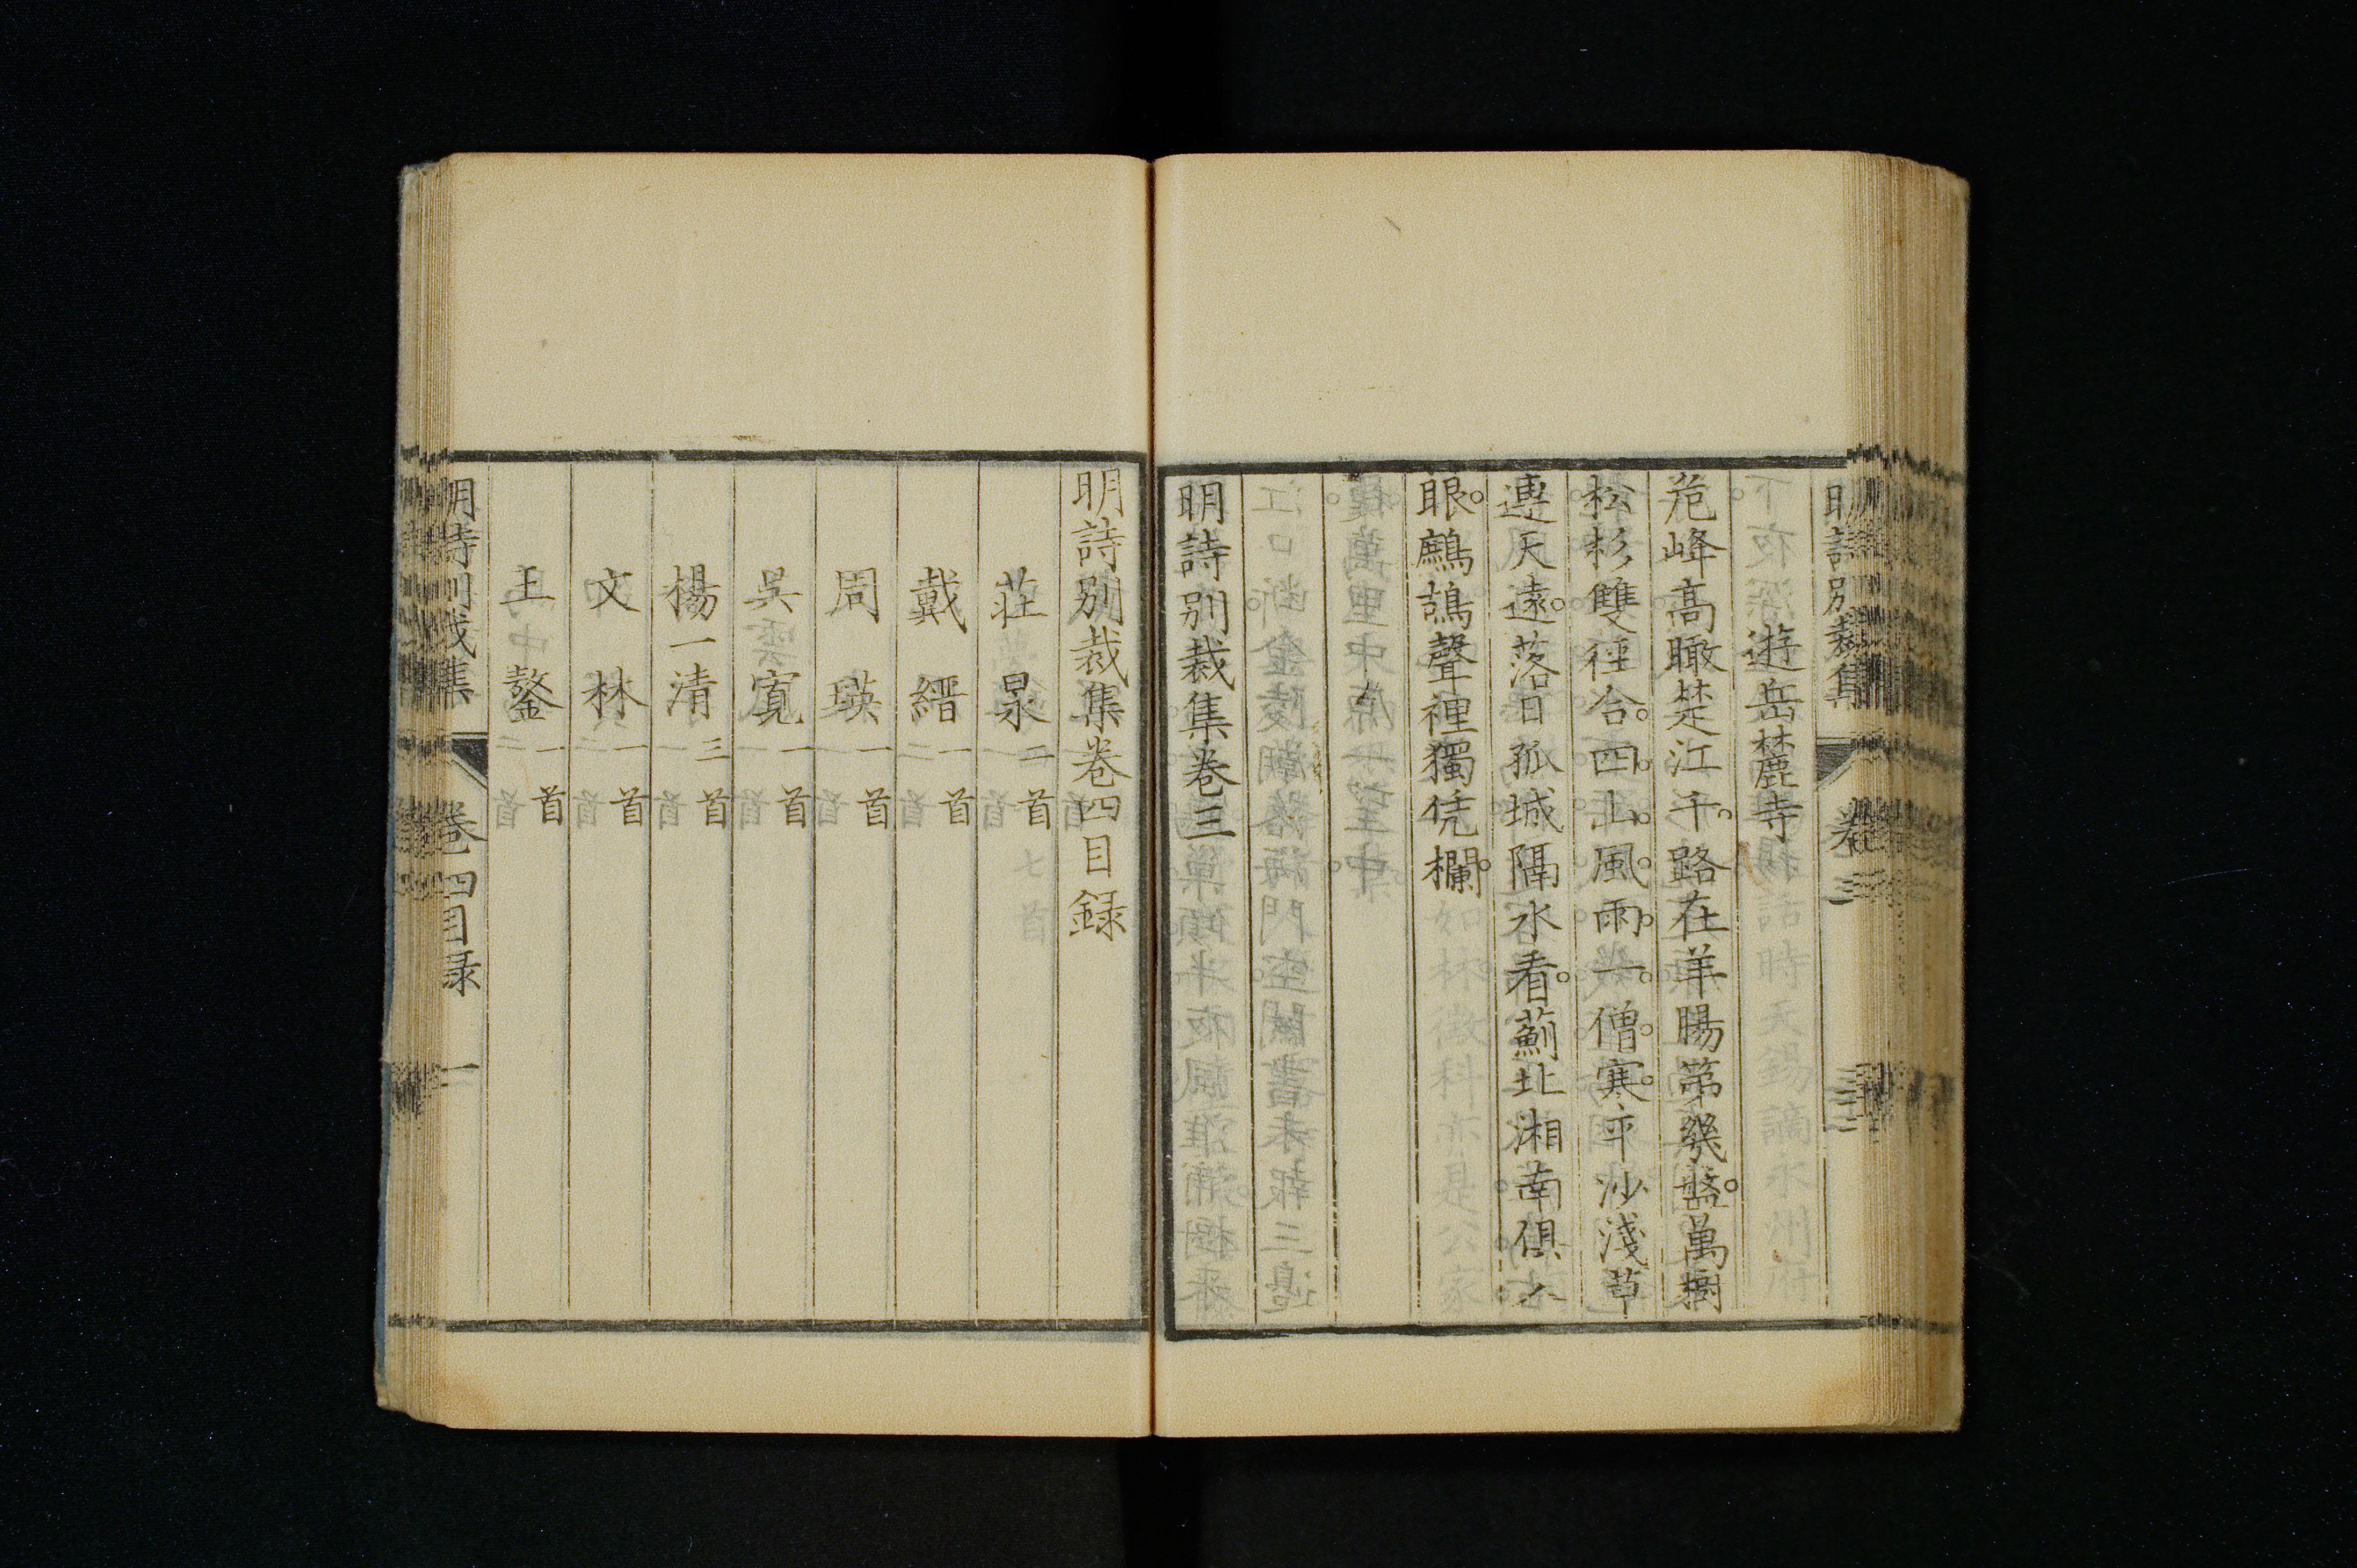 明詩別裁集
卷三
遊岳麓寺
危峰高瞰楚江干。路在羊腸第幾盤。萬樹
松杉雙徑合。四山風雨一僧寒。平沙淺草
連天遠。落日孤城隔水看。薊北湘南俱入
眼。鷓鴣聲裡獨凭欄。
明詩別裁集卷三
明詩別裁集卷四目録
莊㫤 二首
戴縉 一首
周瑛 一首
吳寬 一首
楊一清 三首
文林 一首
王鏊 一首
明詩別裁集
卷四目録
一